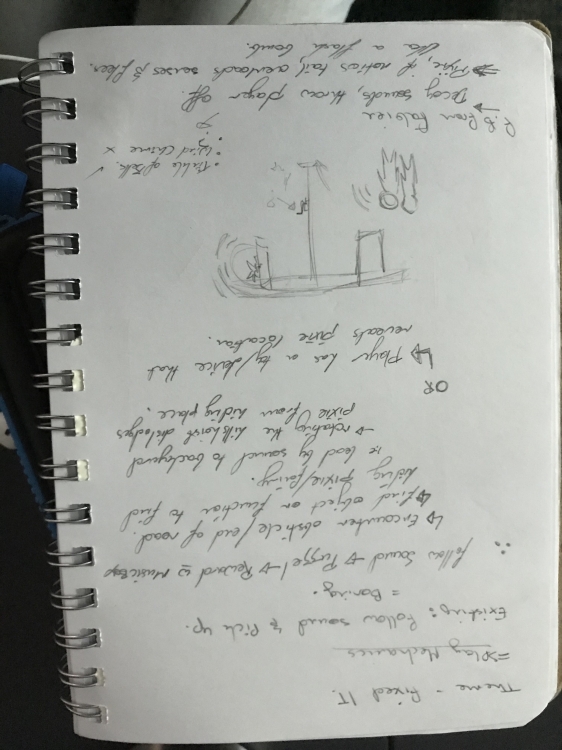 Theme - Fixed IT.
⇒ Play Mechanics
Existing: Follow sound & Pick up.
= Boring.
∴ Follow sound → Puzzel → Reward = Musicbox
↳ Encounter obstacle / end of road.
↳ find object or function to find
hiding pixie/fairy.
ie lead by sound to backyard
→ rotating the hillshoist dislodges
pixie from hiding place.
OR
↳ Player has a toy/device that
reveals pixie location.
• Tinkle of Bells ✓
• Wind Chime x
P.B from
→ Decoy sounds, throws player off
⇒ Pixie, if notices tail, overloads senses & flees.
like a flash bomb.